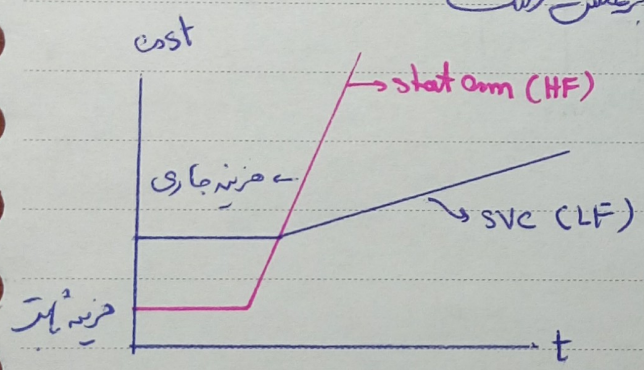 cost
statcom (HF)
هزینه جاری
SVC (LF)
هزینه ثابت
t